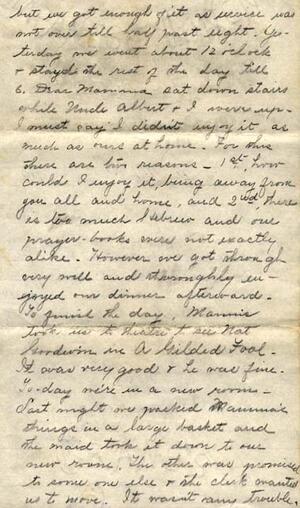 but we got enough of it as service was
not over till half past eight. Yes-
terday we went about 12 o'clock
& stayed the rest of the day till
6. Dear Mamma sat down stairs
while Uncle Albert & I were up.
I must say I didn't enjoy it as
much as ours at home. For this
there are two reasons - 1st, how
could I enjoy it, being away from
you all and home, and 2nd there
is too much Hebrew and our
prayer-books were not exactly
alike. However we got through
very well and thoroughly en-
joyed our dinner afterward.
To finish the day, Mannie
took us to theatre to see Nat
Goodwin in A Gilded Fool.
It was very good & he was fine.
To-day we're in a new room -
Last night we packed Mamma's
things in a large basket and
the maid took it down to our
new room. The other was promised
to some one else & the clerk wanted
us to move. It wasn't any trouble.